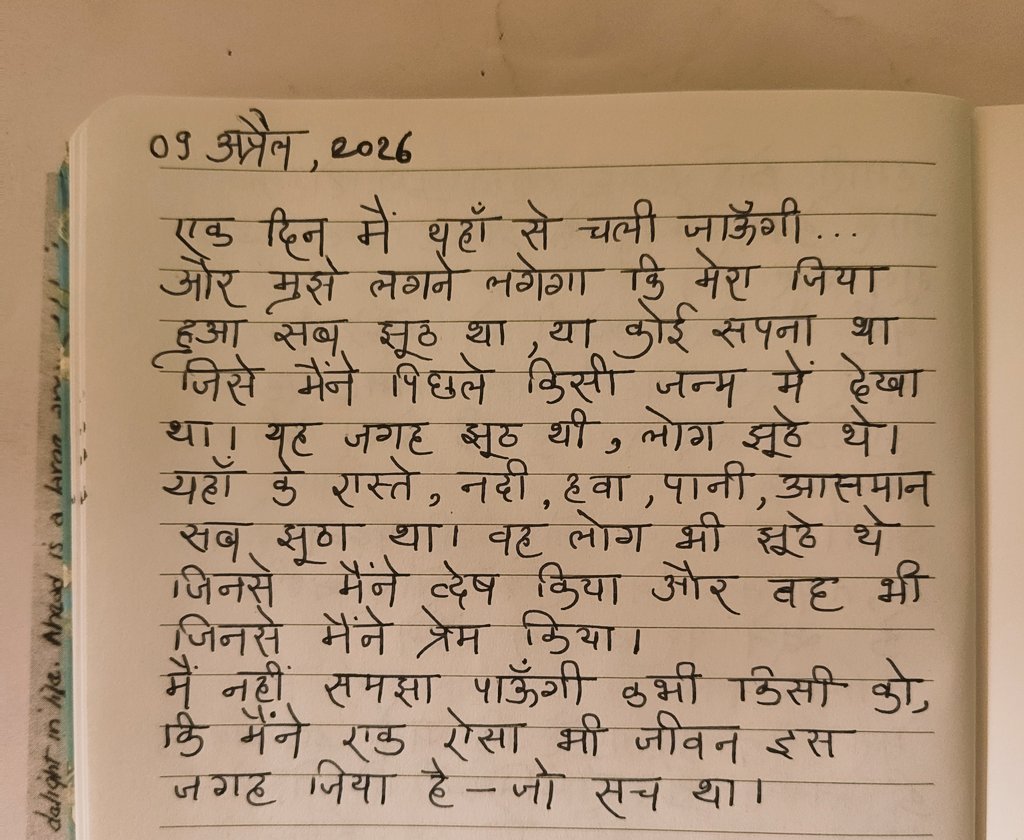 09 अप्रैल, 2026
एक दिन मैं यहाँ से चली जाऊँगी...
और मुझे लगने लगेगा कि मेरा जिया
हुआ सब झूठ था, या कोई सपना था
जिसे मैंने पिछले किसी जन्म में देखा
था। यह जगह झूठ थी, लोग झूठे थे।
यहाँ के रास्ते, नदी, हवा, पानी, आसमान
सब झूठा था। वह लोग भी झूठे थे
जिनसे मैंने व्देष किया और वह भी
जिनसे मैंने प्रेम किया।
मैं नहीं समझा पाऊँगी कभी किसी को,
कि मैंने एक ऐसा भी जीवन इस
जगह जिया है – जो सच था।
dalight in life. Ahead is a